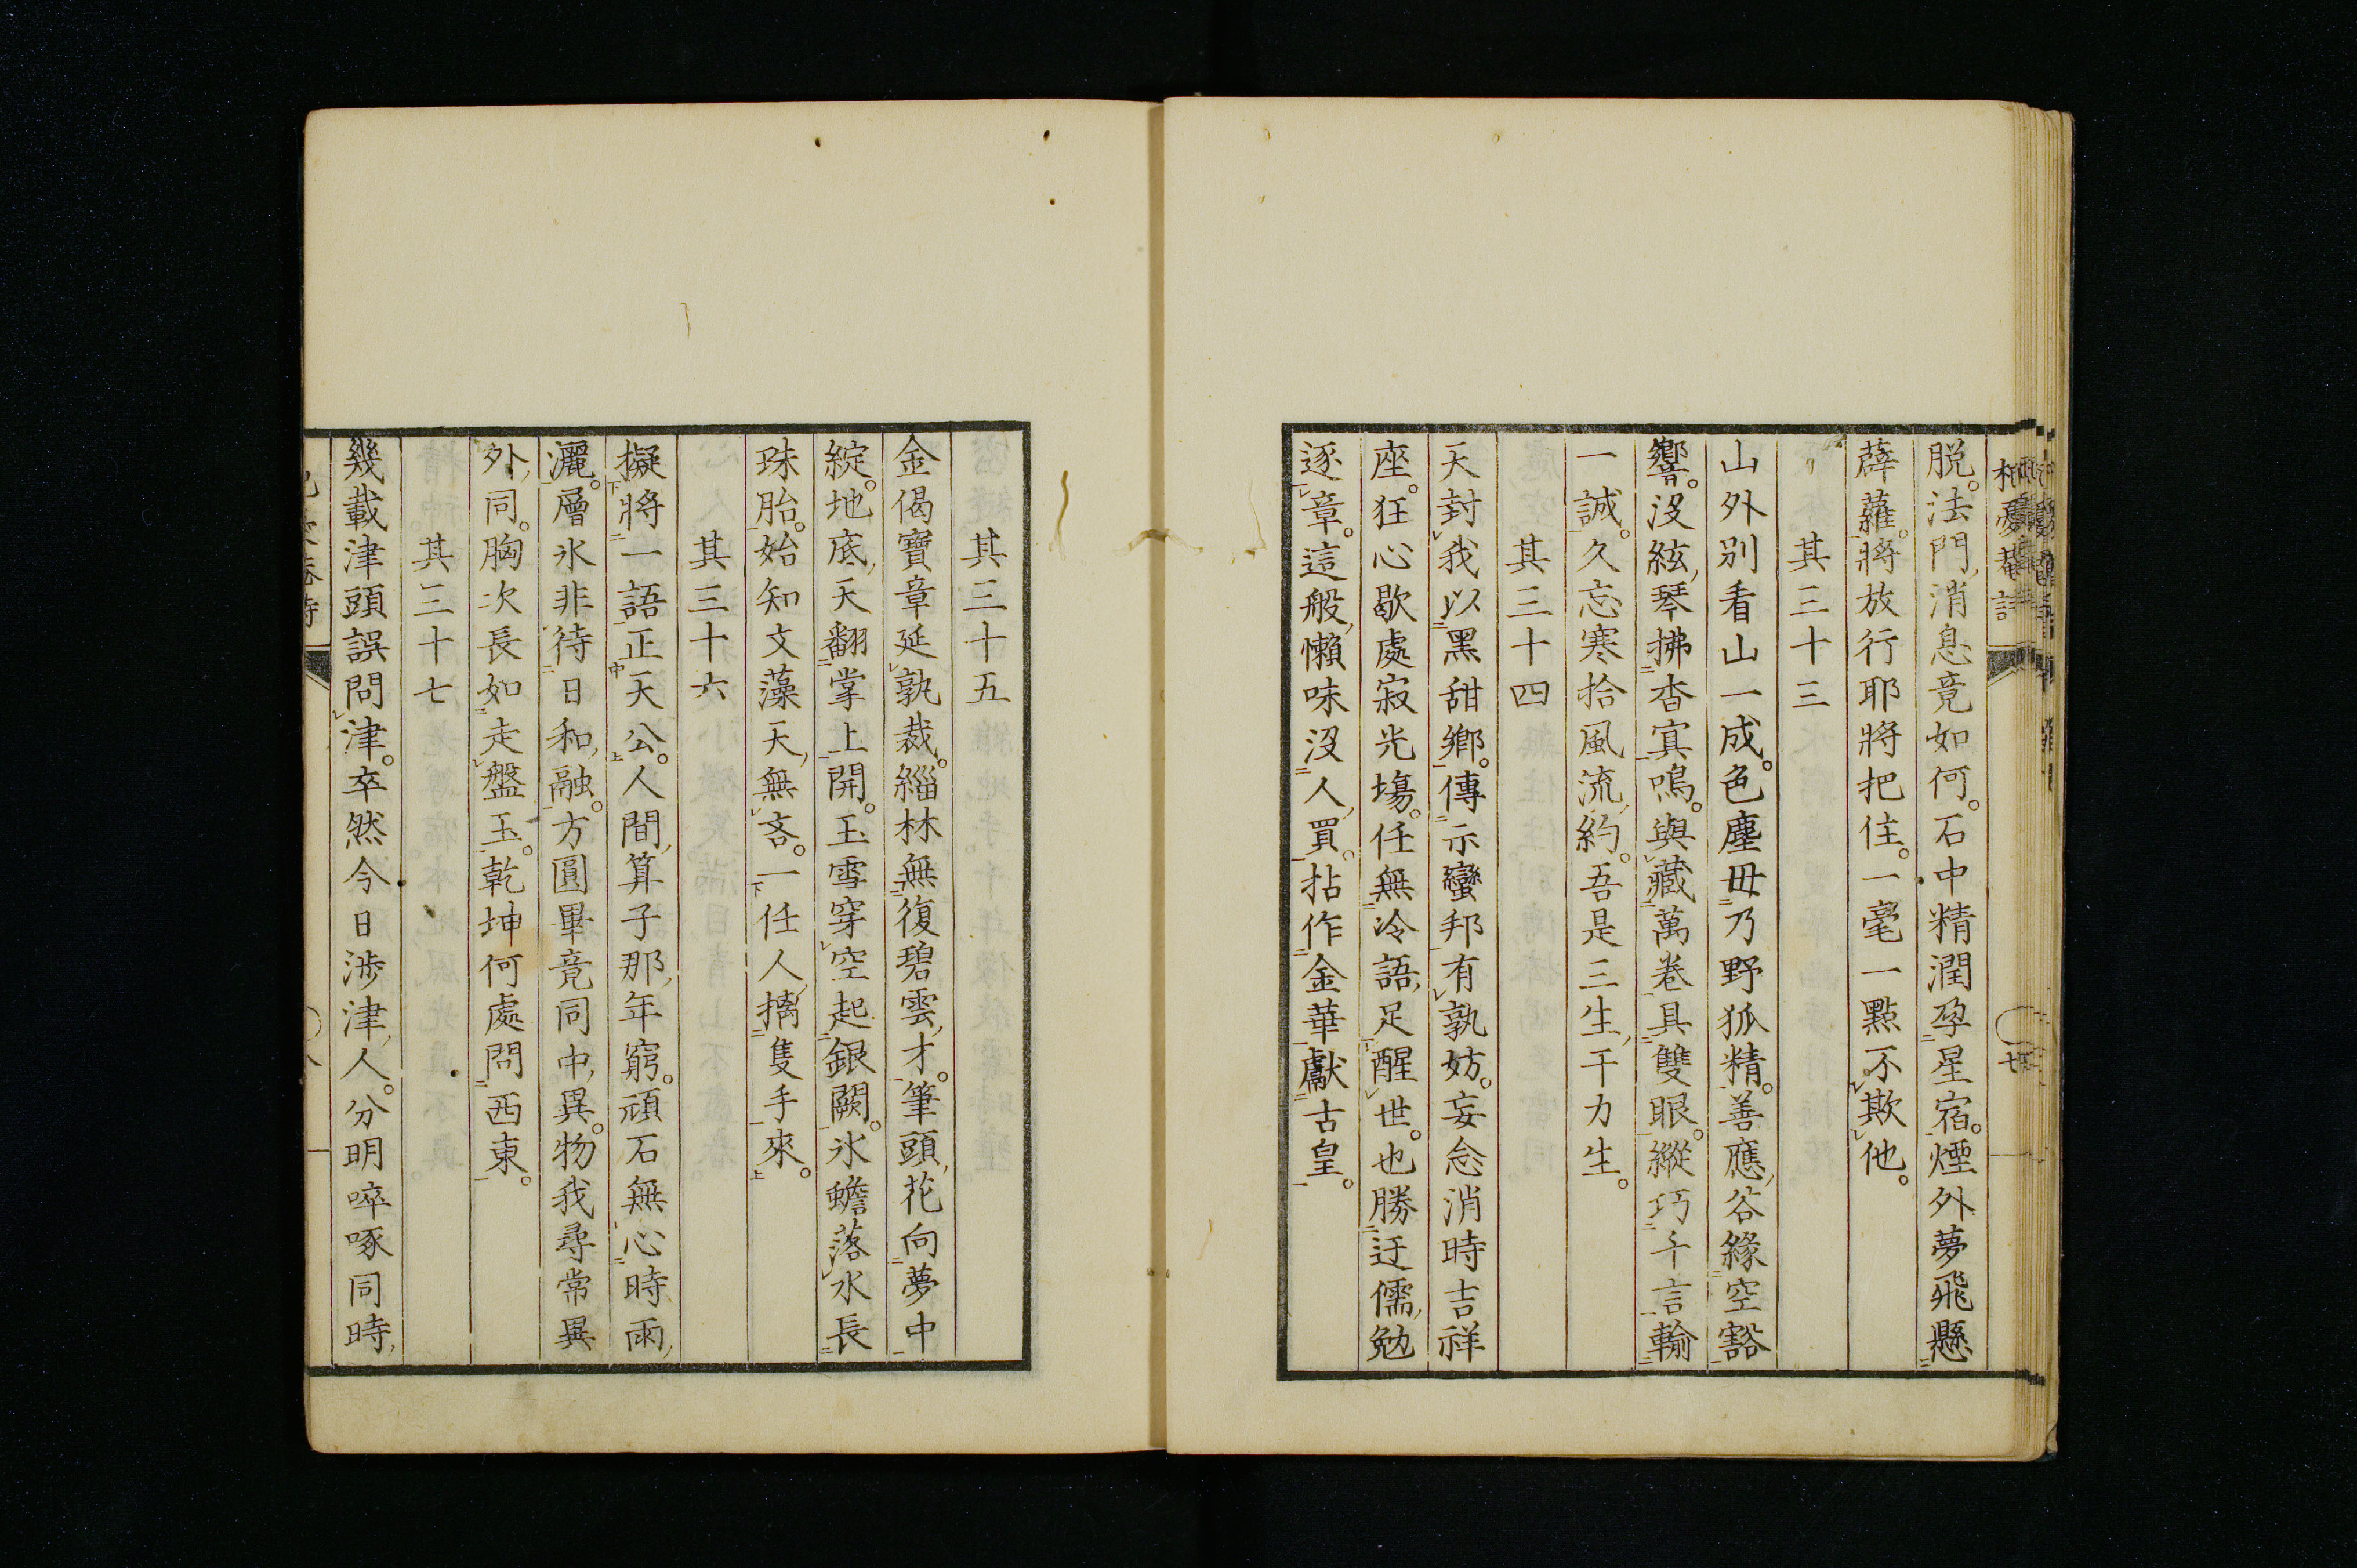 脱。法門、消息竟如何。石中精潤孕星宿。煙外夢飛懸
薜蘿。將放行耶將把住。一毫一點不欺他。
其三十三
山外別看山一成。色塵毋乃野狐精。善應、谷緣空豁
響。没絃、琴拂杳寞鳴。與藏萬卷具雙眼。縱巧千言輸
一誠。久忘寒拾風流、約。吾是三生、干力生。
其三十四
天封我以黑甜鄉。傳示蠻邦有孰妨。妄念消時吉祥
座。狂心歇處寂光塲。任無冷語、足醒世。也勝迂儒、勉
逐章。這般、懶味没人、買。拈作金華獻古皇。
其三十五
金偈寶章延孰裁。緇林無復碧雲、才。筆頭、花向夢中
綻。地底、天翻掌上開。玉雪穿空起銀闕。氷蟾落水長
珠胎。始知文藻天、無吝。一任人、摛隻手來。
其三十六
擬將一語正天公。人間、算子那、年窮。頑石無心時雨、
灑。層氷非待日和、融。方圓畢竟同中、異。物我尋常異
外、同。胸次長如走盤玉。乾坤何處問西東。
其三十七
幾載津頭誤問津。卒然今日渉津、人。分明啐啄同時、